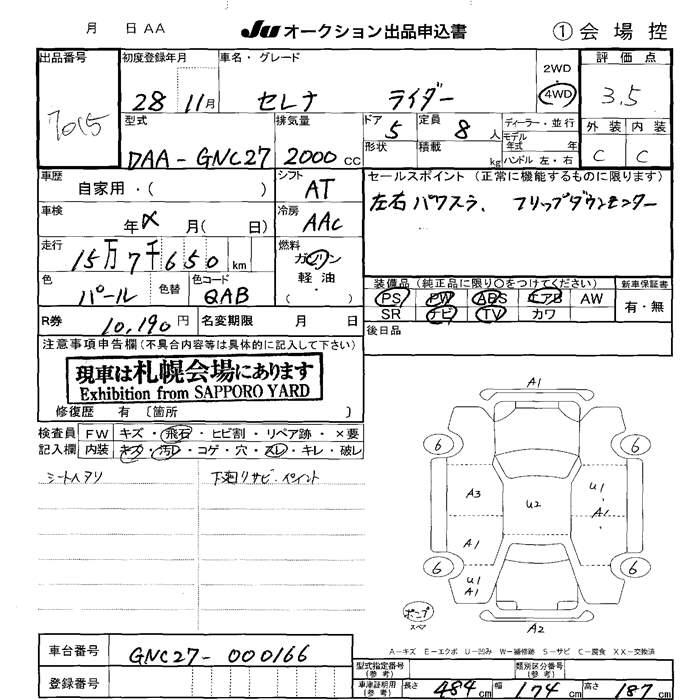 月 日 AA JU オークション出品申込書 ① 会場控
出品番号 初度登録年月 車名・グレード 2WD・4WD 評価点
7015 28 11月 セレナ ライダー 3.5
型式 排気量 ドア 5 定員 8人 ディーラー・並行 外装 内装
モデル年式 年
DAA-GNC27 2000cc 形状 積載 kg ハンドル 左・右 C C
車歴 自家用・( ) シフト AT セールスポイント (正常に機能するものに限ります)
左右パワスラ、フリップダウンモニター
車検 年 月( 日) 冷房 AAC
走行 15万7千650km 燃料 ガソリン・軽油・( )
色 パール 色替 色コード QAB
装備品(純正品に限り○をつけてください) 新車保証書
PS PW ABS エアB AW 有・無
SR ナビ TV カワ
R券 10,190円 名変期限 月 日 後日品
注意事項申告欄(不具合内容等は具体的に記入して下さい)
現車は札幌会場にあります
Exhibition from SAPPORO YARD
修復歴 有 〔箇所 〕
検査員記入欄 FW キズ・飛石・ヒビ割・リペア跡・×要
内装 キズ・汚れ・コゲ・穴・スレ・キレ・破レ
シートヘタリ 下廻りサビ・ペイント
A1
6 6
A3 U2 U1
A1
A1
6 6
U1
A1
A1
パンプ スペア
A2
A-キズ E-エクボ U-凹み W-補修跡 S-サビ C-腐食 XX-交換済
車台番号 GNC27-000166
型式指定番号(参考) 類別区分番号(参考)
登録番号 車庫証明用(参考) 長さ 484cm 幅 174cm 高さ 187cm